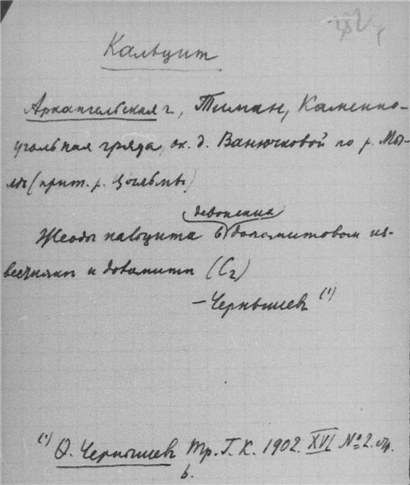 Кальцит
Архангельская г., Тиман, Каменно-
угольная гряда, ок. д. Ванючковой по р. Мы-
ле (прит. р. Цыльмы)
девонских
Жеоды кальцита в доломитовом из-
вестняке и доломите (C₂)
— Чернышев (¹)
(¹) Ѳ. Чернышев Тр. Г. К. 1902. XVI № 2. стр.
6.